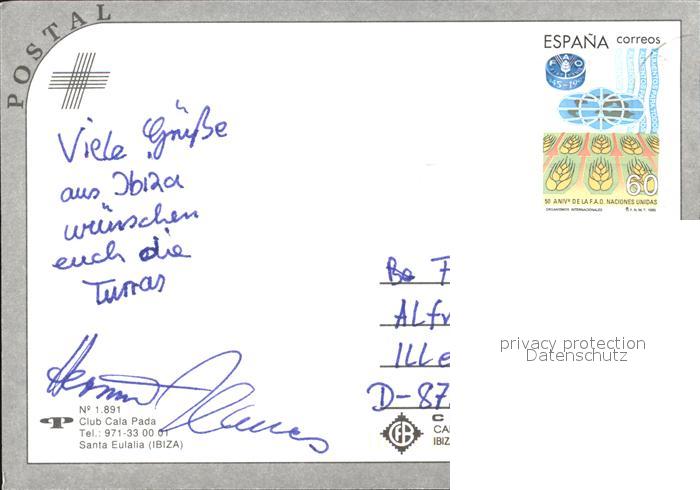 POSTAL
ESPAÑA correos
FAO
60
50 ANIVº DE LA F.A.O. NACIONES UNIDAS
ORGANISMOS INTERNACIONALES F.N.M.T. 1995
Viele Grüße
aus Ibiza
wünschen
euch die
Turras
Alfr
Ille
D-87
privacy protection
Datenschutz
Nº 1.891
Club Cala Pada
Tel.: 971-33 00 01
Santa Eulalia (IBIZA)